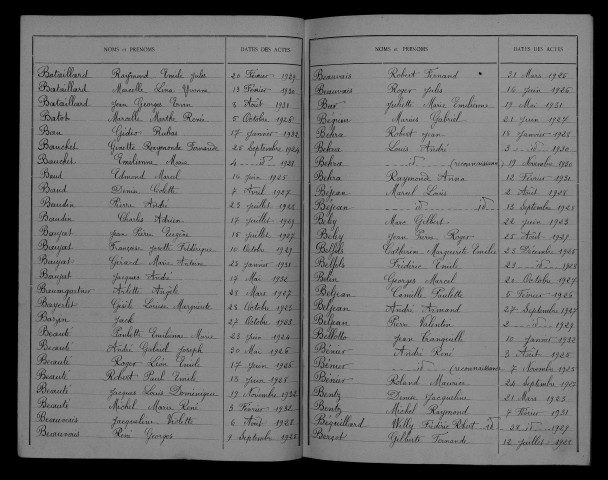 NOMS ET PRÉNOMS DATES DES ACTES
Bataillard Raymond Emile Jules 20 Février 1929
Bataillard Marcelle Léna Yvonne 18 Février 1920
Bataillard Jean Georges 8 Août 1931
Batot Marcelle Marthe Renée 5 Octobre 1926
Bau Gédéor 17 Janvier 1932
Bauchet Ginette Raymonde Fernande 28 Septembre 1924
Bauchet Emelienne Marie 4 - d° - 1925
Baud Edmond Marcel 14 Juin 1925
Baud Denise Colette 7 Avril 1927
Baudin Pierre André 25 Juillet 1922
Baudin Charles Adrien 17 Juillet 1929
Baupat Jean Pierre Eugène 18 Juillet 1927
Baupat Françoise Josette Frédérique 10 Octobre 1929
Baupat Gérard Marie Antoine 23 Janvier 1931
Baupat Jacques André 17 Mai 1932
Baumgartner Arlette Angèle 28 Mars 1927
Bayerlet Gisèle Louise Marguerite 28 Octobre 1925
Bazin Jack 27 Octobre 1923
Beauté Paulette Emilienne Marie 23 Juin 1924
Beauté André Gabriel Joseph 30 Mai 1926
Beauté Roger Léon Emile 17 Juin 1926
Beauté Robert Paul Emile 13 Juin 1928
Beauté Jacques Louis Dominique 19 Novembre 1932
Beauté Michel Marie René 3 Février 1932
Beauvais Jacqueline Violette 6 Août 1922
Beauvais René Georges 9 Septembre 1922
NOMS ET PRÉNOMS DATES DES ACTES
Beauvais Robert Fernand 21 Mars 1925
Beauvais Roger Jules 16 Juin 1926
Juliette Marie Emilienne 19 Mai 1928
Béguin Marius Gabriel 21 Juin 1927
Behra Robert Jean 18 Janvier 1928
Behra Louis André 3 - d° - 1930
Behra - d° - (reconnaissance) 19 Novembre 1930
Behra Raymonde Anna 12 Février 1931
Béjean Marcel Louis 2 Août 1928
Béjean - d° - d° 13 Septembre 1928
Béley Marc Gilbert 22 Juin 1923
Béley Jean Pierre Roger 25 Août 1929
Belfils Catherine Marguerite Emilie 23 Décembre 1928
Belfils Frédéric Emile 23 - d° - 1928
Belin Georges Marcel 20 Octobre 1927
Beljean Camille Paulette 5 Février 1926
Beljean André Armand 27 Septembre 1927
Beljean Pierre Valentin 2 - d° - 1929
Bellotto Jean Tranquille 10 Janvier 1932
Bénier André René 3 Août 1925
Bénier - d° - (reconnaissance) 7 Novembre 1925
Bénier Roland Maurice 24 Septembre 1927
Bentz Denise Jacqueline 21 Mars 1923
Bentz Michel Raymond 7 Février 1931
Béquillard Willy Frédéric Robert 28 - d° - 1929
Berçot Gilberte Fernande 12 Juillet 1922